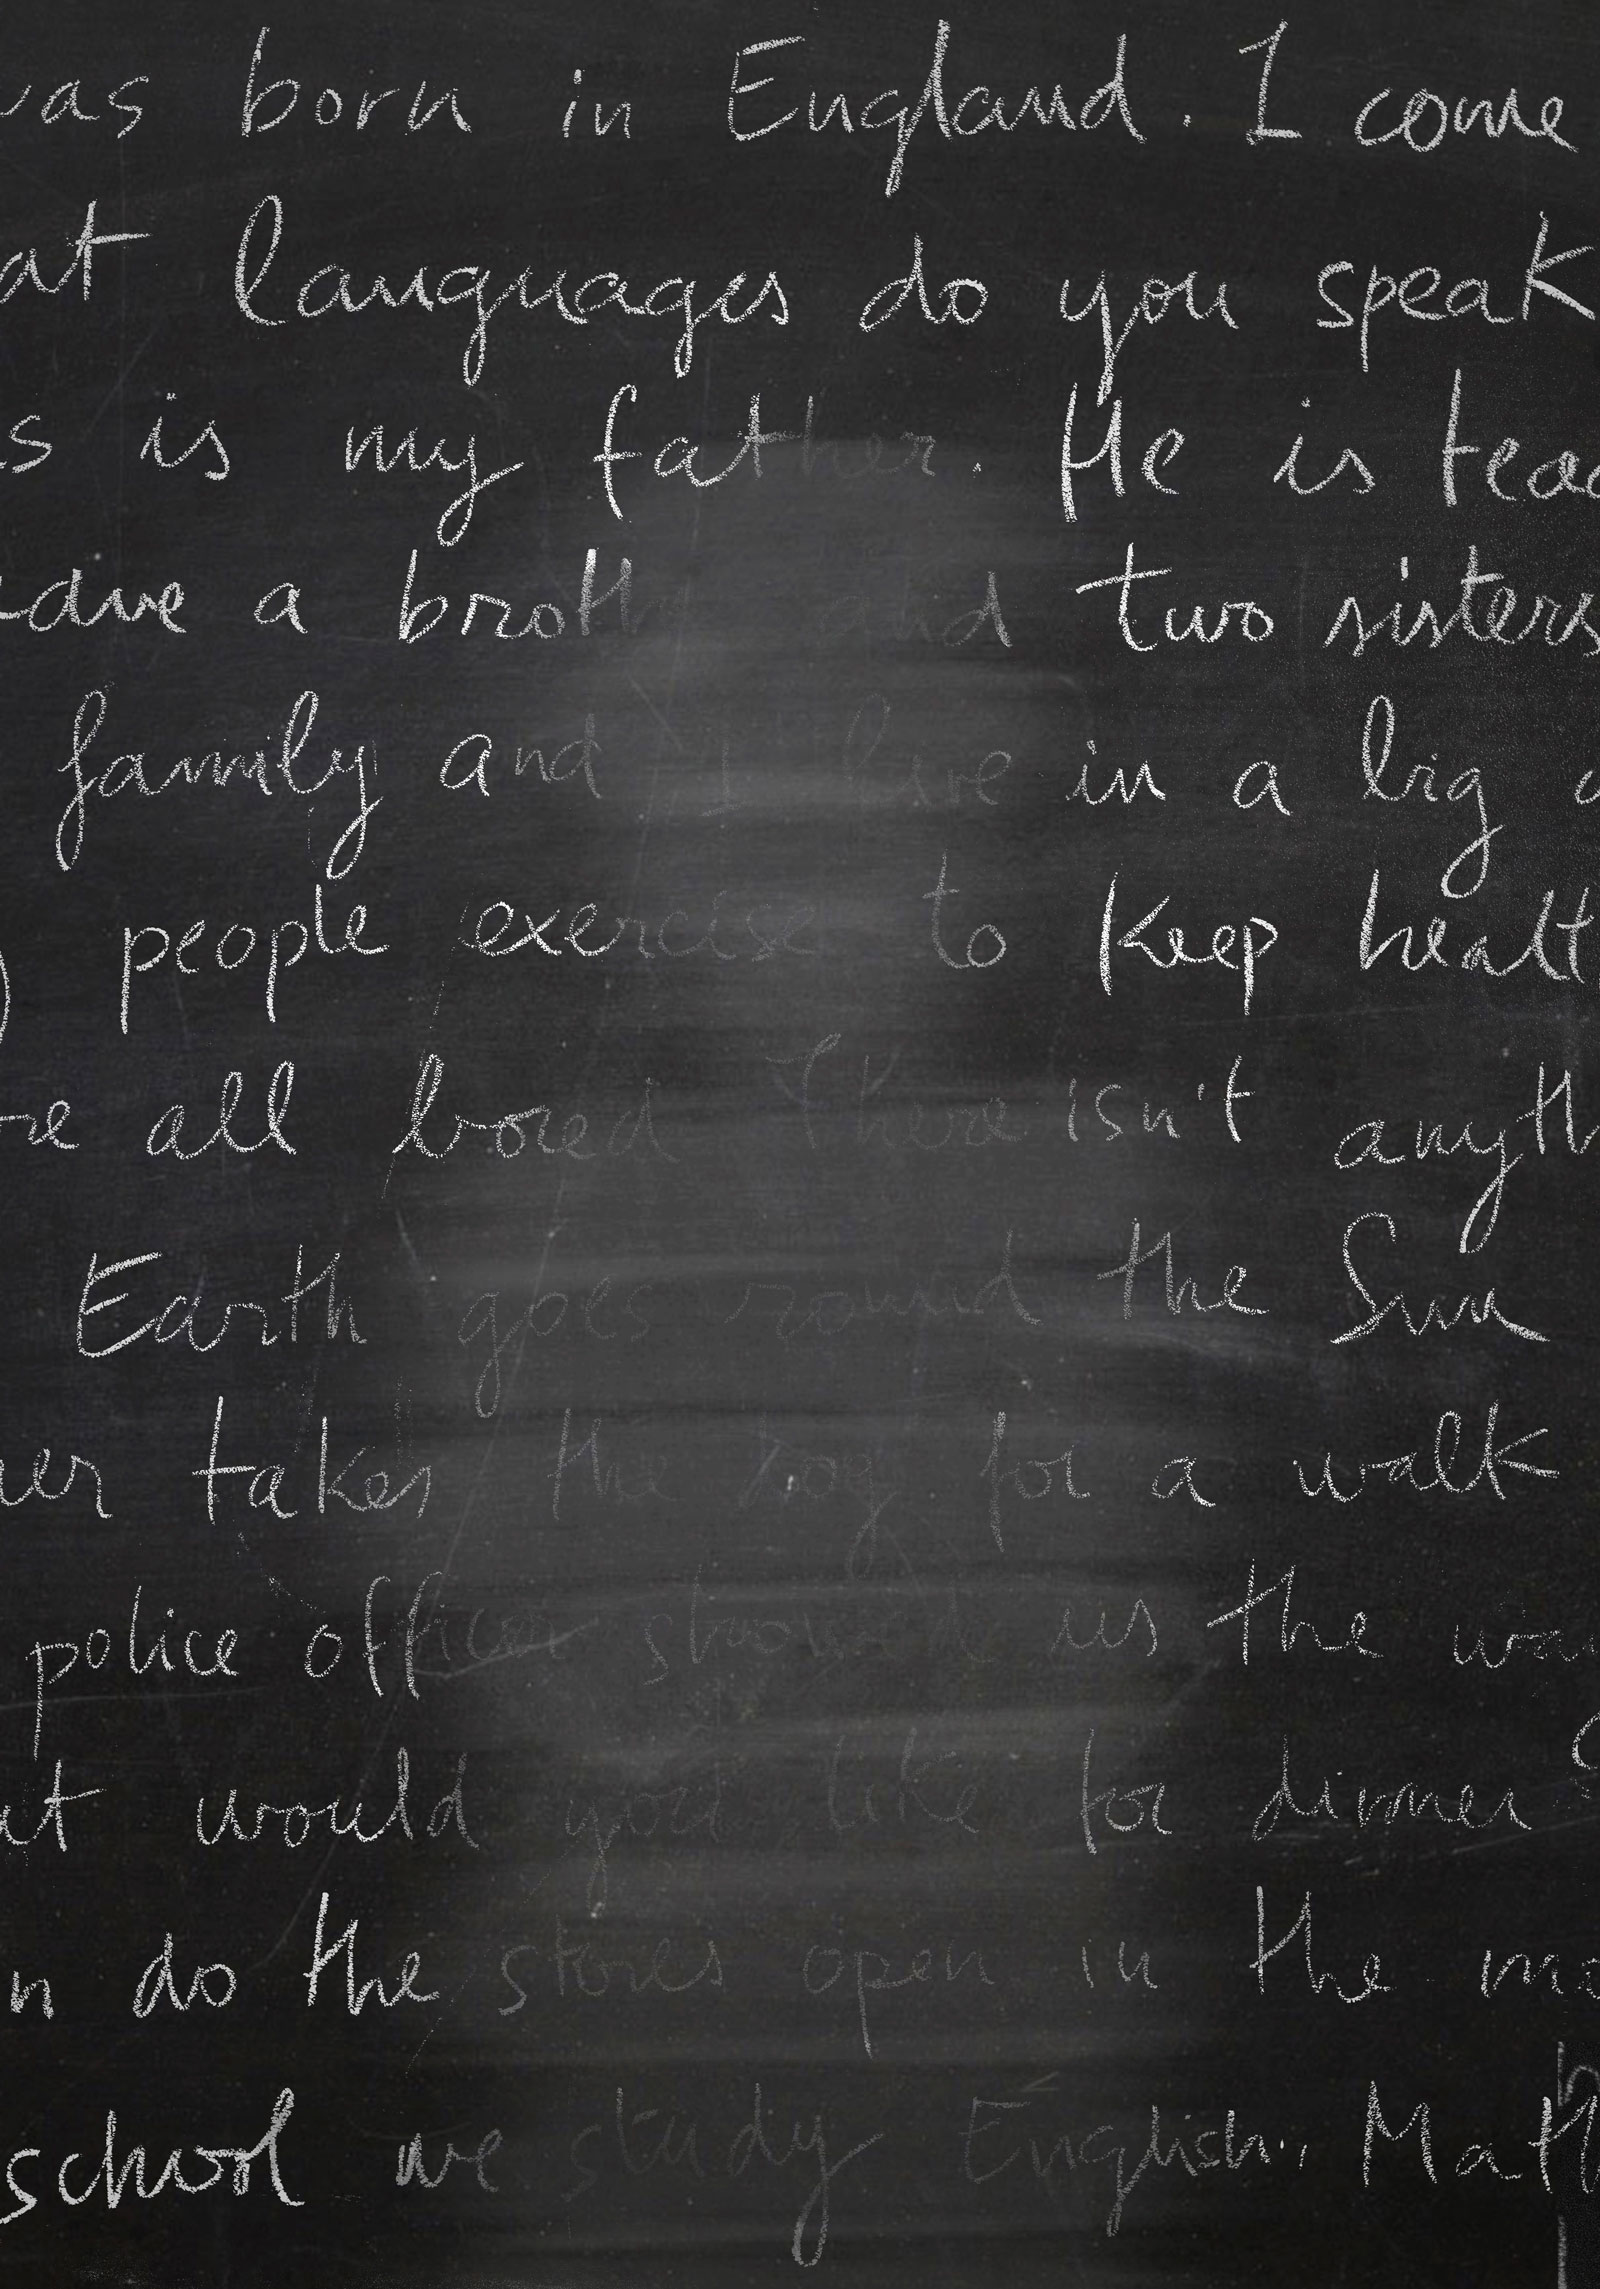 was born in England. I come
at languages do you speak
is is my father. He is teac
have a broth and two sisters
family and I live in a big a
people exercise to keep healt
re all bored There isn't anyth
Earth goes round the Sun
her takes the dog for a walk
police officer showed us the way
at would you like for dinner?
n do the stores open in the mo
school we study English, Math